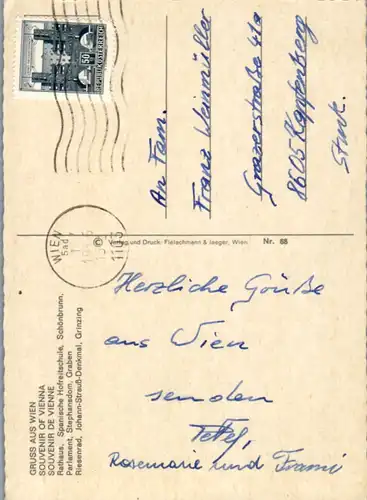 GRUSS AUS WIEN
SOUVENIR OF VIENNA
SOUVENIR DE VIENNE
Rathaus, Spanische Hofreitschule, Schönbrunn,
Parlament, Stephansdom, Graben
Riesenrad, Johann-Strauß-Denkmal, Grinzing
Herzliche Grüße
aus Wien
senden
Rosemarie und Franzi
© Verlag und Druck: Fleischmann & Jaeger, Wien. Nr. 88
WIEN
1103
50
REPUBLIK ÖSTERREICH
An Fam.
Franz Weinmüller
Grazerstraße 41a
8605 Kapfenberg
Stmk.